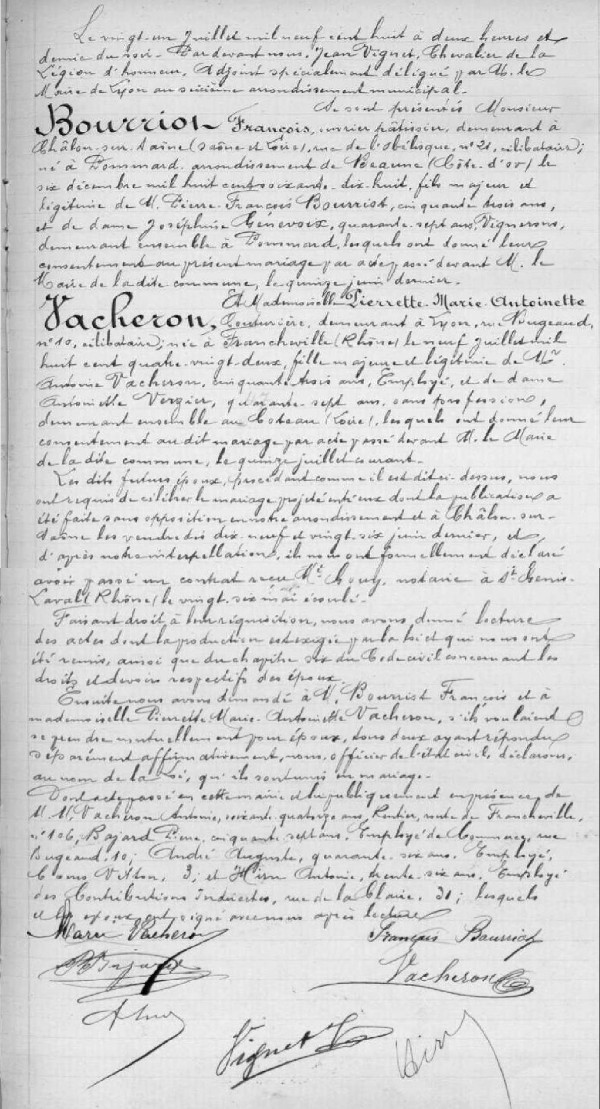 Le vingt-un Juillet mil neuf cent huit à deux heures et
demie du soir. Par devant nous, Jean Vignet, Chevalier de la
Légion d'honneur, Adjoint spécialement délégué par M. le
Maire de Lyon au sixième arrondissement municipal.
Se sont présentés Monsieur
Bourriot François, ouvrier pâtissier, demeurant à
Châlon-sur-Saône (Saône et Loire), rue de l'Obélisque, n° 21, célibataire;
né à Pommard, arrondissement de Beaune (Côte-d'or) le
six décembre mil huit cent soixante-dix-huit, fils majeur et
légitime de M. Pierre François Bourriot, cinquante trois ans,
et de dame Joséphine Génevoix, quarante-sept ans, Vignerons,
demeurant ensemble à Pommard, lesquels ont donné leur
consentement au présent mariage par acte passé devant M. le
Maire de la dite commune, le quinze juin dernier.
Et Mademoiselle Pierrette-Marie-Antoinette
Vacheron, Couturière, demeurant à Lyon, rue Bugeaud,
n° 10, célibataire; née à Francheville (Rhône) le neuf juillet mil
huit cent quatre-vingt-deux, fille majeure et légitime de Mr.
Antoine Vacheron, cinquante trois ans, Employé, et de dame
Antoinette Verzier, quarante-sept ans, sans profession,
demeurant ensemble au Coteau (Loire), lesquels ont donné leur
consentement au dit mariage par acte passé devant M. le Maire
de la dite commune, le quinze juillet courant.
Les dits futurs époux, procédant comme il est dit ci-dessus, nous
ont requis de célébrer le mariage projeté entr'eux dont la publication a
été faite sans opposition en notre arrondissement et à Châlon-sur-
Saône les vendredis dix-neuf et vingt-six juin dernier, et
d'après notre interpellation, ils nous ont formellement déclaré
avoir passé un contrat reçu Mt. notaire à St. Genis-
Laval (Rhône) le vingt-six mai écoulé.
Faisant droit à leur réquisition, nous avons donné lecture
des actes dont la production est exigée par la loi et qui nous ont
été remis, ainsi que du chapitre six du Code civil concernant les
droits et devoirs respectifs des époux.
Ensuite nous avons demandé à M. Bourriot François et à
mademoiselle Pierrette Marie-Antoinette Vacheron, s'ils voulaient
se prendre mutuellement pour époux, tous deux ayant répondu
séparément affirmativement, nous, officier de l'état civil, déclarons,
au nom de la Loi, qu'ils sont unis en mariage.
Dont acte passé en cette mairie et lu publiquement en présence de
M. M. Vacheron Antoine, soixante-quatorze ans, Rentier, route de Francheville,
n° 106, Bajard cinquante sept ans, Employé de Commerce, rue
Bugeaud, 10; André Auguste, quarante-six ans, Employé,
Cours Vitton, 3; et Antoine, trente-six ans, Employé
des Contributions Indirectes, rue de la Claire, 31; lesquels
et les époux ont signé avec nous après lecture.
Marie Vacheron François Bourriot
Bajard Vacheron
Vignet